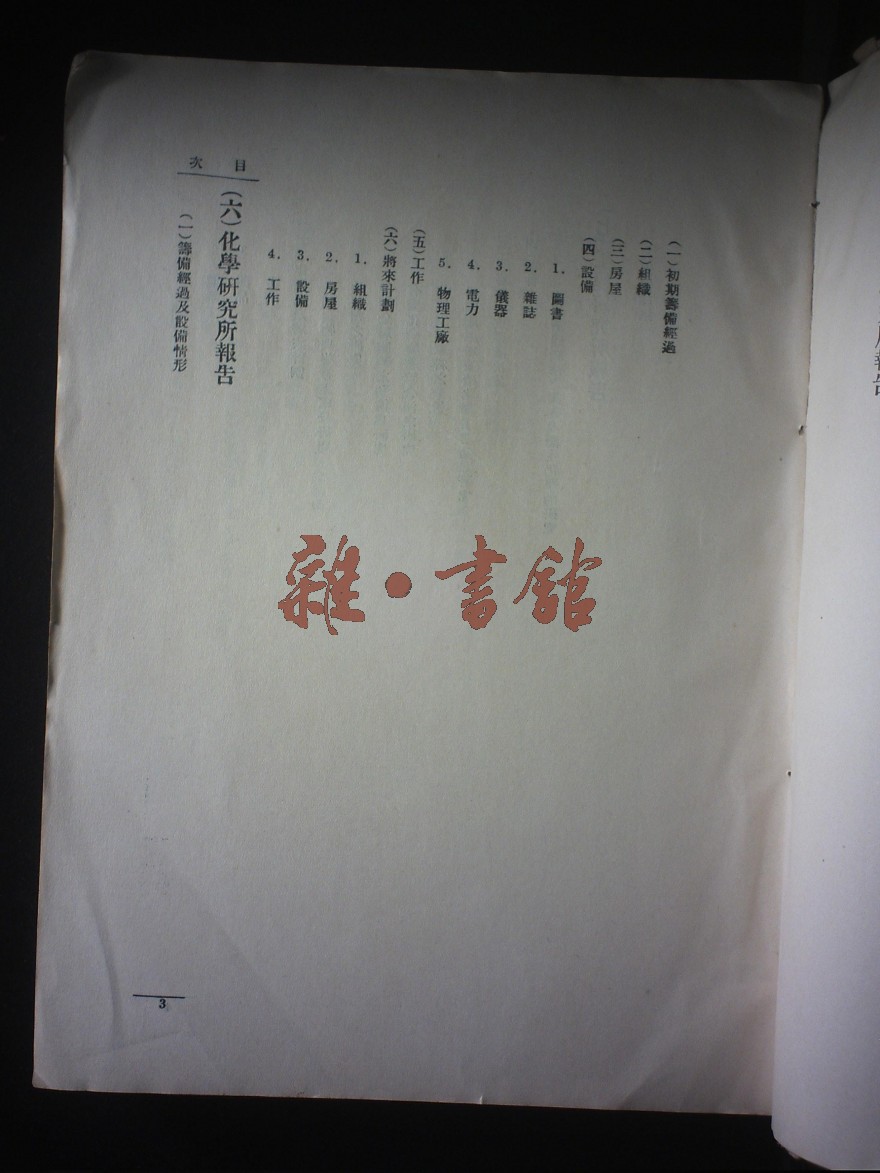 目次
(一)初期籌備經過
(二)組織
(三)房屋
(四)設備
1. 圖書
2. 雜誌
3. 儀器
4. 電力
5. 物理工廠
(五)工作
(六)將來計劃
1. 組織
2. 房屋
3. 設備
4. 工作
(六)化學研究所報告
(一)籌備經過及設備情形
3
雜·書館